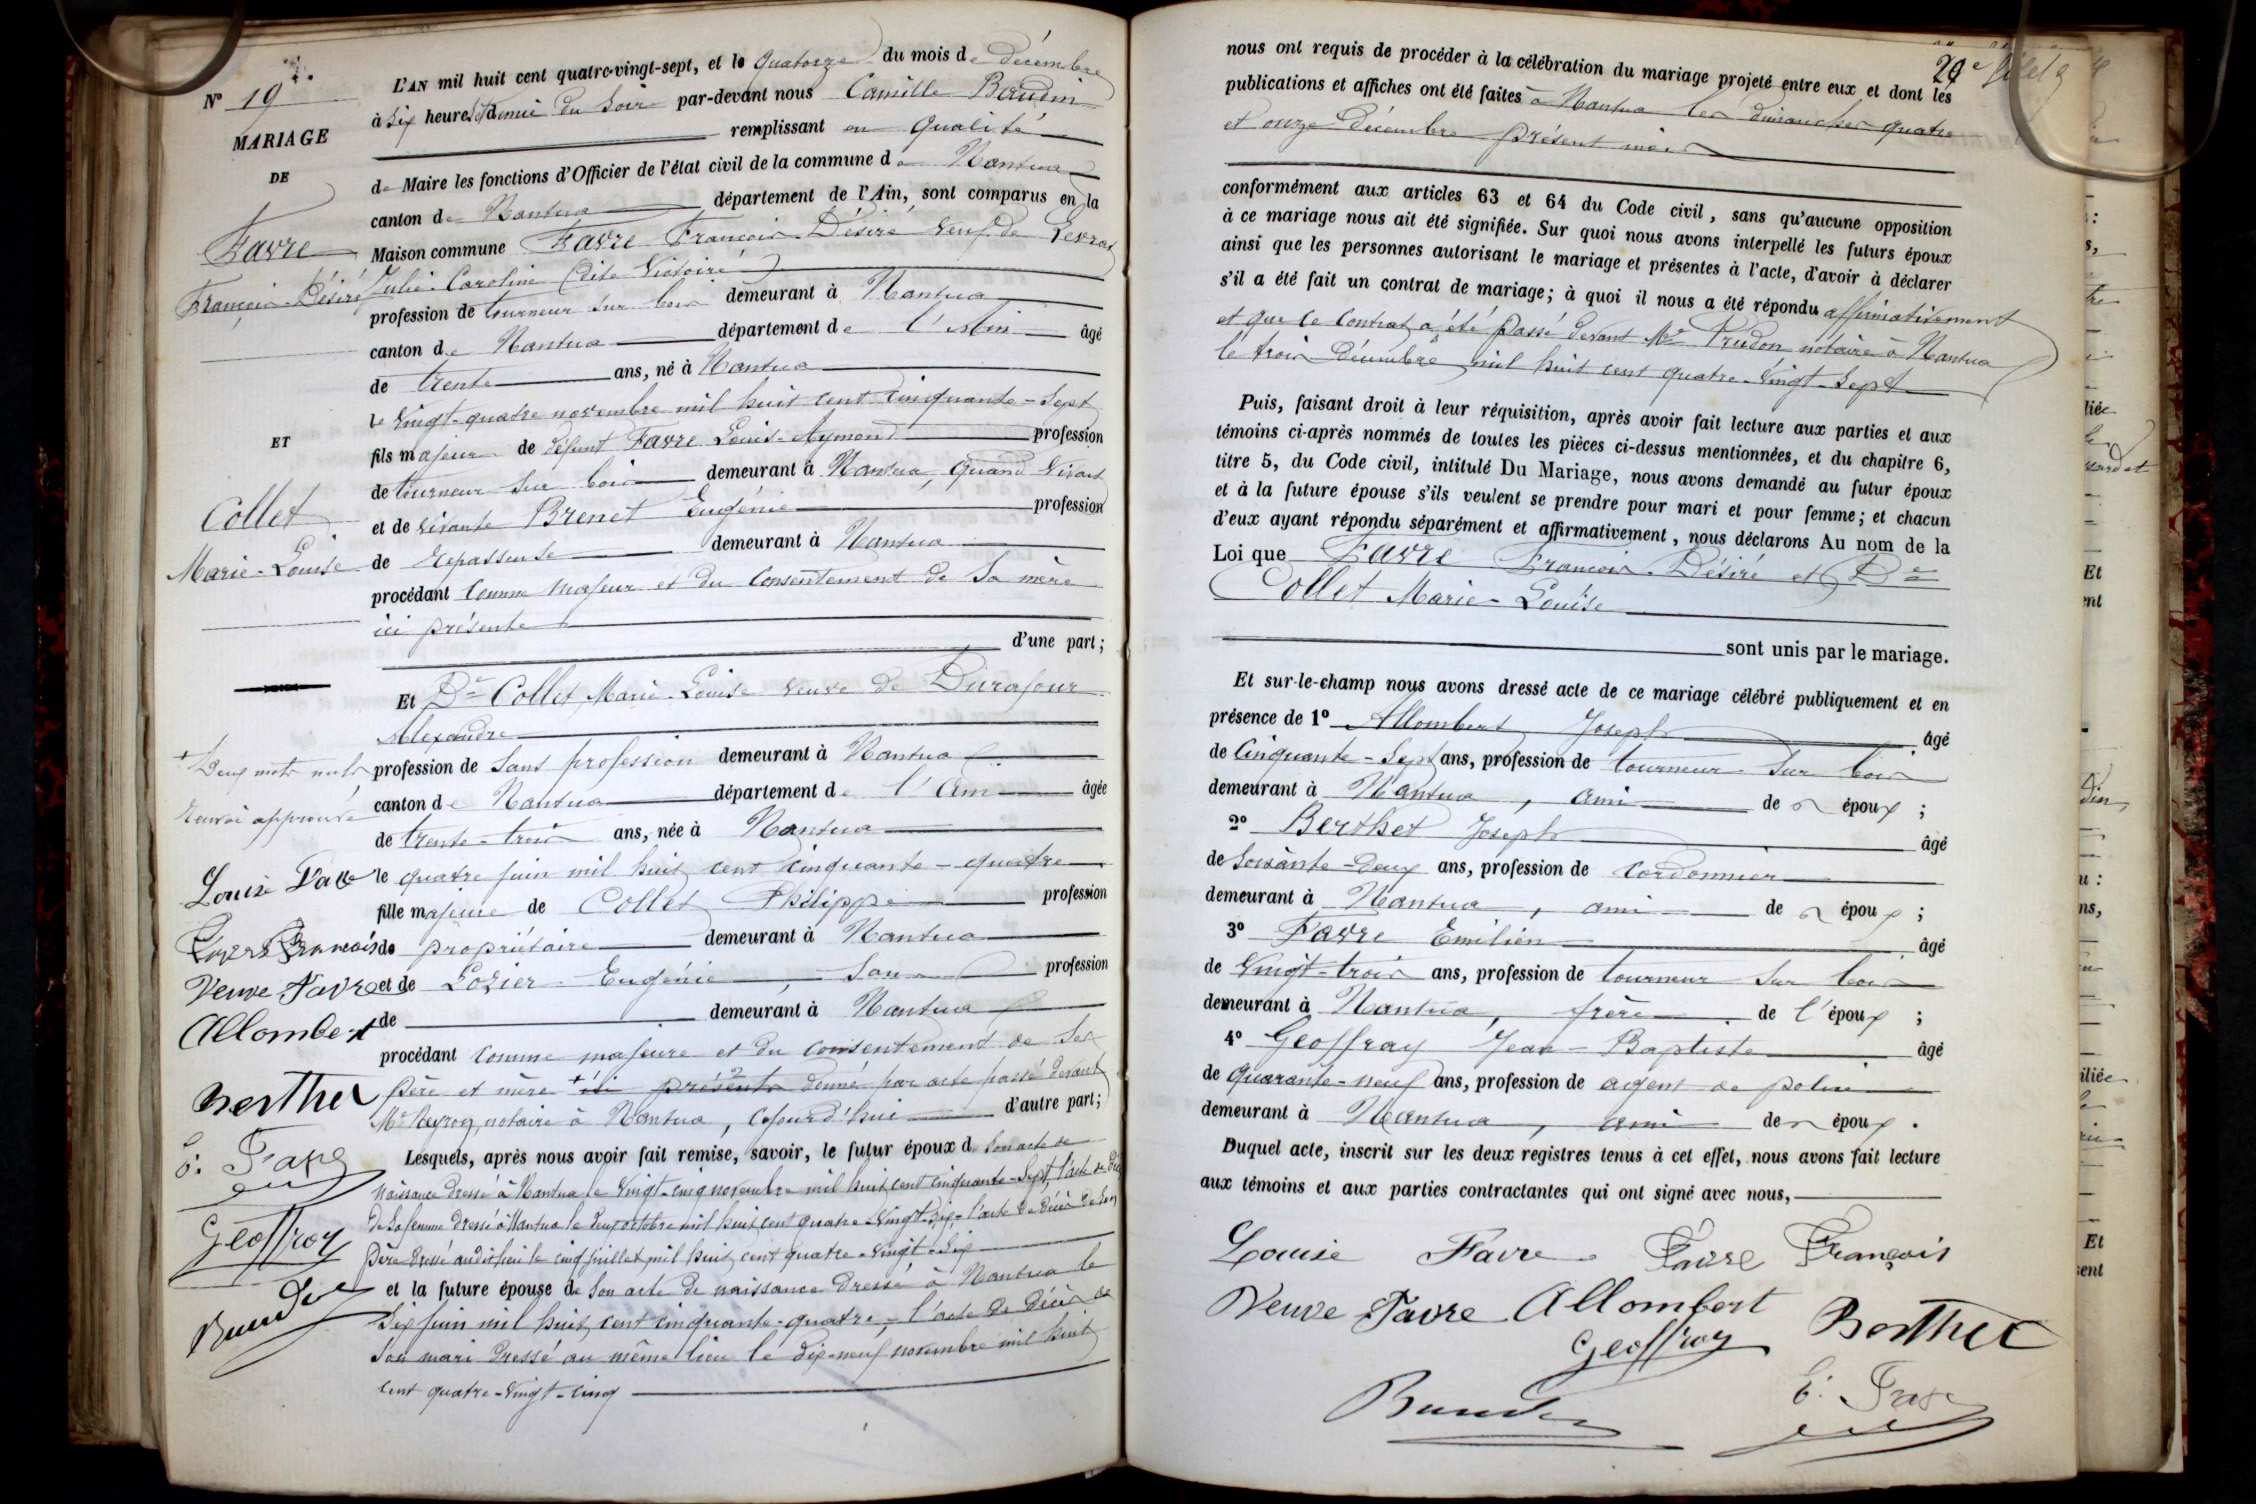 N° 19
MARIAGE
DE
Favre
François-Désiré
ET
Collet
Marie-Louise
+ Deux mots nuls
renvoi approuvé
Louise Favre
Favre François
Veuve Favre
Allombert
Berthet
E. Favre
Geoffray
Baudin
L'AN mil huit cent quatre-vingt-sept, et le quatorze du mois de décembre
à six heures et demie du soir par-devant nous Camille Baudin
remplissant en qualité
de Maire les fonctions d'Officier de l'état civil de la commune de Nantua
canton de Nantua département de l'Ain, sont comparus en la
Maison commune Favre François-Désiré veuf de Levrat
Julie-Caroline (dite Victoire)
profession de tourneur sur bois demeurant à Nantua
canton de Nantua département de l'Ain âgé
de trente ans, né à Nantua
le vingt-quatre novembre mil huit cent cinquante-sept
fils majeur de défunt Favre Louis-Aymond profession
de tourneur sur bois demeurant à Nantua, quand vivait
et de vivante Brenet Eugénie profession
de repasseuse demeurant à Nantua
procédant comme majeur et du consentement de sa mère
ici présente
d'une part;
Et De Collet Marie-Louise veuve de Durafour
Alexandre
profession de sans profession demeurant à Nantua
canton de Nantua département de l'Ain âgée
de trente-trois ans, née à Nantua
le quatre juin mil huit cent cinquante-quatre
fille majeure de Collet Philippe profession
de propriétaire demeurant à Nantua
et de Lozier Eugénie, sans profession
de demeurant à Nantua
procédant comme majeure et du consentement de ses
père et mère + ici présents donné par acte passé devant
Me Neyron, notaire à Nantua, cejourd'hui d'autre part;
Lesquels, après nous avoir fait remise, savoir, le futur époux de son acte de
naissance dressé à Nantua le vingt-cinq novembre mil huit cent cinquante-sept, l'acte de décès
de sa femme dressé à Nantua le deux octobre mil huit cent quatre-vingt-six, l'acte de décès de son
père dressé audit lieu le cinq juillet mil huit cent quatre-vingt-six
et la future épouse de son acte de naissance dressé à Nantua le
six juin mil huit cent cinquante-quatre, l'acte de décès de
son mari dressé au même lieu le dix-neuf novembre mil huit
cent quatre-vingt-cinq
nous ont requis de procéder à la célébration du mariage projeté entre eux et dont les
publications et affiches ont été faites à Nantua les dimanches quatre
et onze décembre présent mois
conformément aux articles 63 et 64 du Code civil, sans qu'aucune opposition
à ce mariage nous ait été signifiée. Sur quoi nous avons interpellé les futurs époux
ainsi que les personnes autorisant le mariage et présentes à l'acte, d'avoir à déclarer
s'il a été fait un contrat de mariage; à quoi il nous a été répondu affirmativement
et que ce contrat a été passé devant Me Prudon notaire à Nantua
le trois décembre mil huit cent quatre-vingt-sept
Puis, faisant droit à leur réquisition, après avoir fait lecture aux parties et aux
témoins ci-après nommés de toutes les pièces ci-dessus mentionnées, et du chapitre 6,
titre 5, du Code civil, intitulé Du Mariage, nous avons demandé au futur époux
et à la future épouse s'ils veulent se prendre pour mari et pour femme; et chacun
d'eux ayant répondu séparément et affirmativement, nous déclarons Au nom de la
Loi que Favre François-Désiré et De
Collet Marie-Louise
sont unis par le mariage.
Et sur-le-champ nous avons dressé acte de ce mariage célébré publiquement et en
présence de 1° Allombert Joseph âgé
de cinquante-sept ans, profession de tourneur sur bois
demeurant à Nantua, ami des époux;
2° Berthet Joseph âgé
de soixante-deux ans, profession de cordonnier
demeurant à Nantua, ami des époux;
3° Favre Emilien âgé
de vingt-trois ans, profession de tourneur sur bois
demeurant à Nantua, frère de l'époux;
4° Geoffray Jean-Baptiste âgé
de quarante-neuf ans, profession de agent de police
demeurant à Nantua, ami des époux.
Duquel acte, inscrit sur les deux registres tenus à cet effet, nous avons fait lecture
aux témoins et aux parties contractantes qui ont signé avec nous,
Louise Favre. Favre François
Veuve Favre Allombert Berthet
Geoffray
Baudin E. Favre